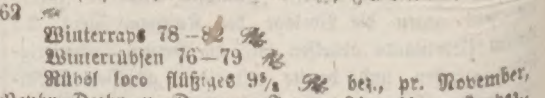 62
Winterraps 78–82 ℛ
Winterrübsen 76–79 ℛ
Rüböl loco flüßiges 9⅝ ℛ bez., pr. November,